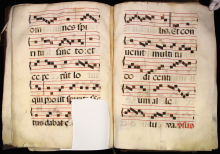 om nes spi
ri tu sanc to: et
ce pe rūt lo
qui pro ut spi
tus dabat e
lis, et con
uenit multi tu
do di centi
um al le
lu ya.